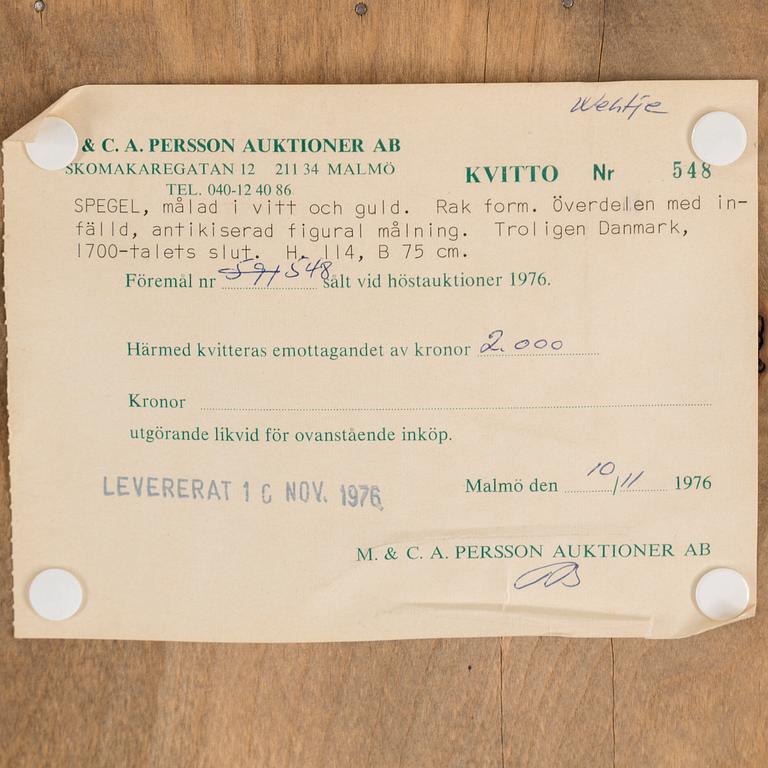 Wehtje
& C. A. PERSSON AUKTIONER AB
SKOMAKAREGATAN 12 211 34 MALMÖ
TEL. 040-12 40 86
KVITTO Nr 548
SPEGEL, målad i vitt och guld. Rak form. Överdelen med in-
fälld, antikiserad figural målning. Troligen Danmark,
1700-talets slut. H. 114, B 75 cm.
Föremål nr 591 548 sålt vid höstauktioner 1976.
Härmed kvitteras emottagandet av kronor 2.000
Kronor
utgörande likvid för ovanstående inköp.
LEVERERAT 10 NOV. 1976
Malmö den 10/11 1976
M. & C. A. PERSSON AUKTIONER AB